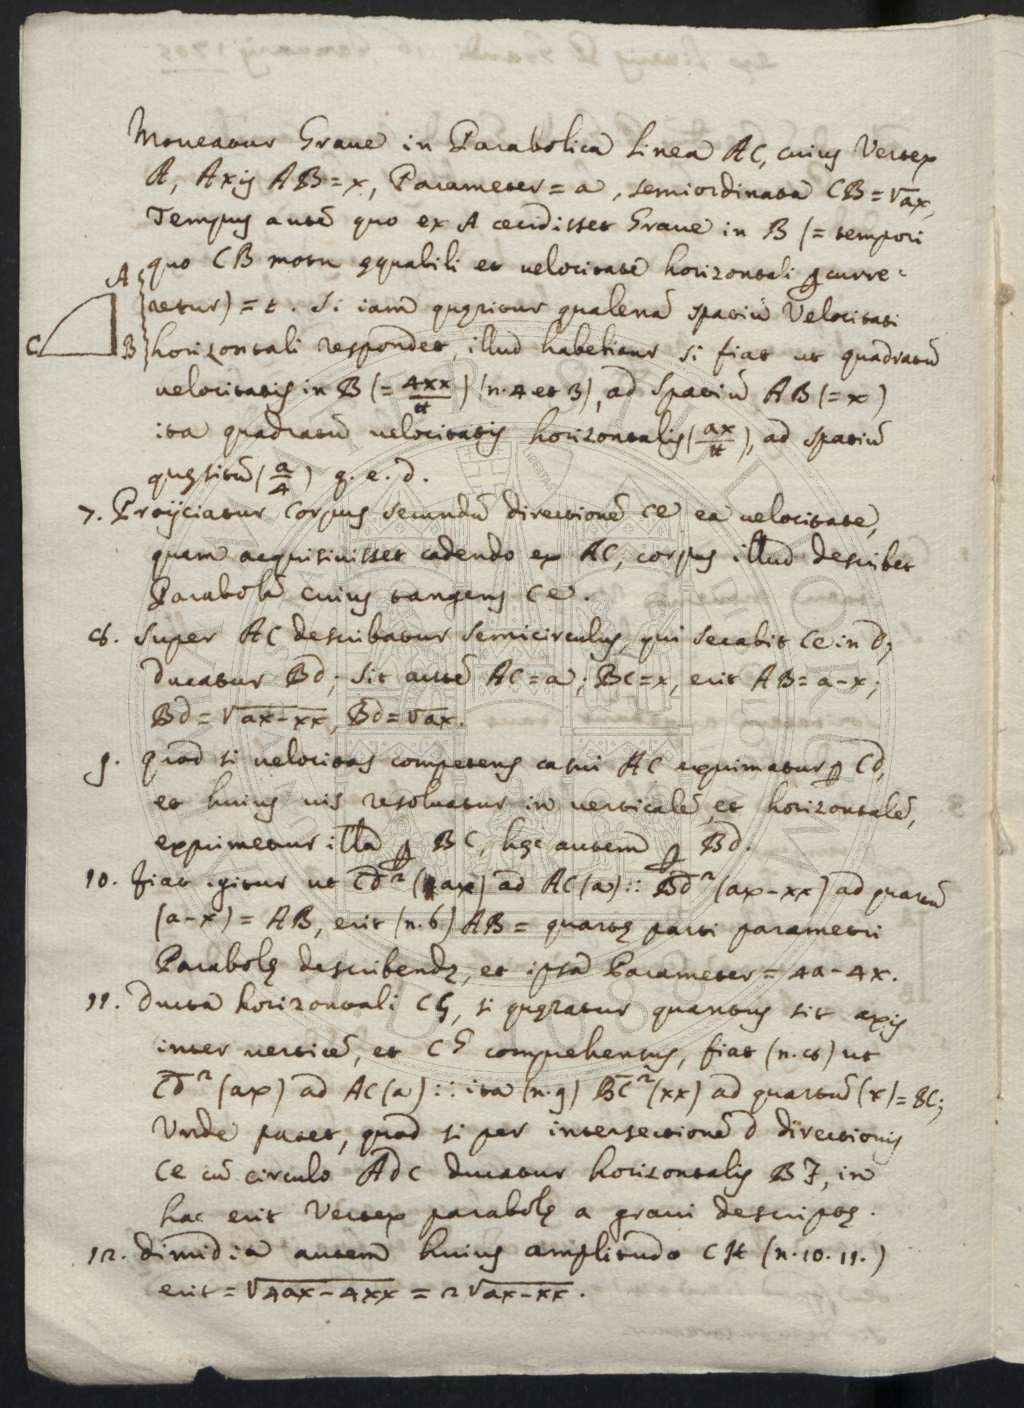 Moueatur Graue in Parabolica Linea AC, cuius Vertex
A, Axis AB = x, Parameter = a, semiordinata CB = √ax,
Tempus autē quo ex A cecidisset Graue in B (= tempori
quo CB motu ęquabili et velocitate horizontali ꝑcurre-
retur) = t. Si iam quęritur qualenā spatiū Velocitati
horizontali respondet, illud habebitur si fiat ut quadratū
velocitatis in B (= 4xx/tt) (n. 4 et 3), ad spatiū AB (= x)
ita quadratū velocitatis horizontalis (ax/tt), ad spatiū
quęsitū (a/4) q. e. d.
A
C
B
7. Proijciatur Corpus secundū directionē CE eā velocitate,
quam acquisiuisset cadendo ex AC, corpus illud describet
Parabolā, cuius tangens CE.
8. Super AC describatur semicirculus, qui secabit CE in D;
Ducatur BD; sit autē AC = a; BC = x, erit AB = a - x;
BD = √ax - xx, BD = √ax.
9. Quod si velocitas competens casui AC exprimatur ꝑ CD,
et huius vis resoluatur in verticalē, et horizontalē,
exprimetur illa ꝑ BC, hęc autem ꝑ BD.
10. Fiat igitur ut CD² (ax) ad AC (a) :: BD² (ax - xx) ad quartū
(a - x) = AB, erit (n. 6) AB = quartę parti parametri
Parabolę describendę, et ipsa Parameter = 4a - 4x.
11. Ducta horizontali CG, si quęratur quantus sit axis
inter verticē, et CG comprehensus, fiat (n. 8) ut
CD² (ax) ad AC (a) :: ita (n. 9) BC² (xx) ad quartū (x) = BC;
Unde patet, quod si per intersectionē D directionis
CE cū circulo ADC ducatur horizontalis BF, in
hac erit Vertex parabolę a graui descriptę.
12. Dimidia autem huius amplitudo CH (n. 10. 11.)
erit = √4ax - 4xx = 2√ax - xx.